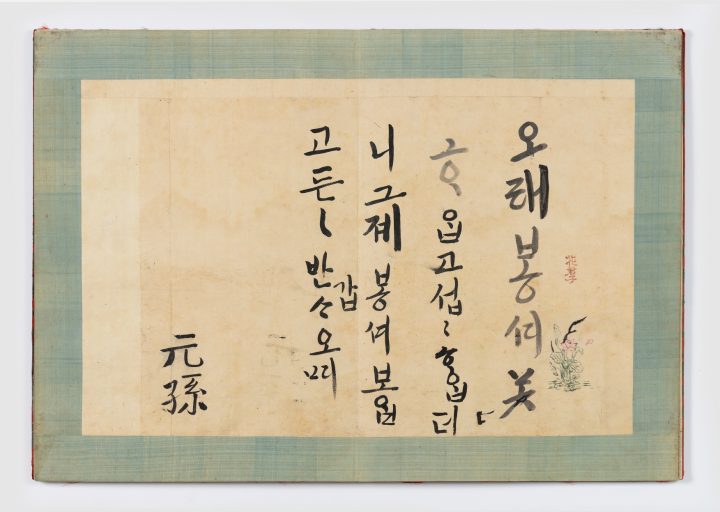 오래봉셔못
ᄒᆞ옵고섭〻ᄒᆞ옵더
니그제봉셔보옵
고든〻반갑ᄉᆞ오며
元孫